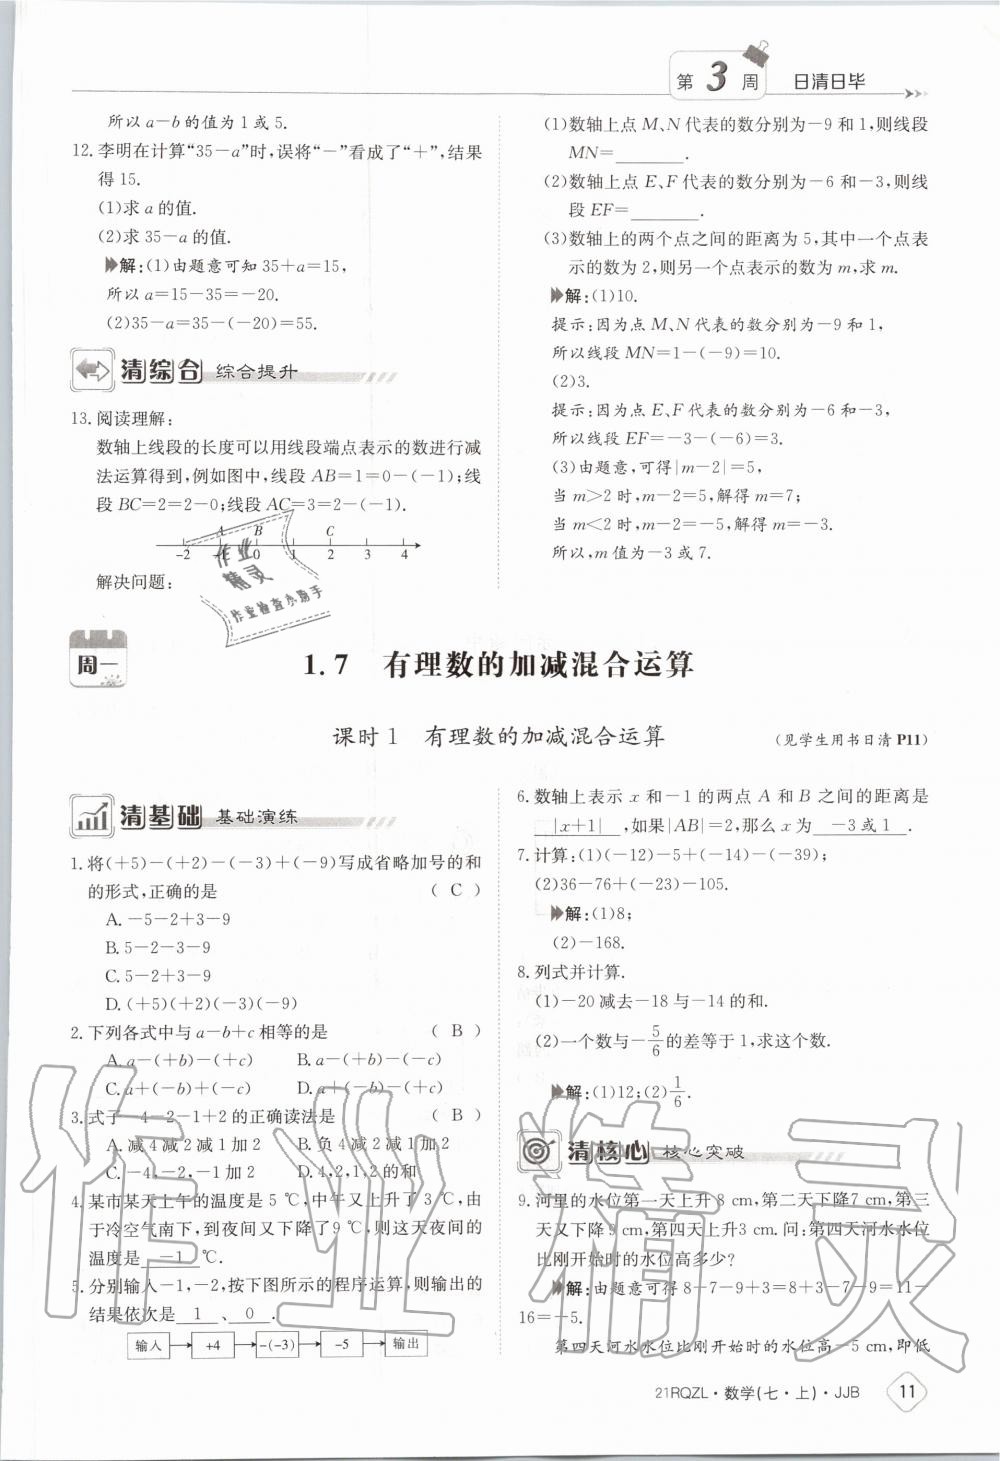 第3周 日清日毕
所以a-b的值为1或5.
12.李明在计算“35-a”时,误将“-”看成了“+”,结果
得15.
(1)求a的值.
(2)求35-a的值.
解:(1)由题意可知35+a=15,
所以a=15-35=-20.
(2)35-a=35-(-20)=55.
清综合 综合提升
13.阅读理解:
数轴上线段的长度可以用线段端点表示的数进行减
法运算得到,例如图中,线段AB=1=0-(-1);线
段BC=2=2-0;线段AC=3=2-(-1).
A B C
-2 -1 0 1 2 3 4
解决问题:
(1)数轴上点M、N代表的数分别为-9和1,则线段
MN=______.
(2)数轴上点E、F代表的数分别为-6和-3,则线
段EF=______.
(3)数轴上的两个点之间的距离为5,其中一个点表
示的数为2,则另一个点表示的数为m,求m.
解:(1)10.
提示:因为点M、N代表的数分别为-9和1,
所以线段MN=1-(-9)=10.
(2)3.
提示:因为点E、F代表的数分别为-6和-3,
所以线段EF=-3-(-6)=3.
(3)由题意,可得|m-2|=5,
当m>2时,m-2=5,解得m=7;
当m<2时,m-2=-5,解得m=-3.
所以,m值为-3或7.
作业
精灵
作业检查小助手
周一
1.7 有理数的加减混合运算
课时1 有理数的加减混合运算 (见学生用书日清P11)
清基础 基础演练
1.将(+5)-(+2)-(-3)+(-9)写成省略加号的和
的形式,正确的是 (C)
A.-5-2+3-9
B.5-2-3-9
C.5-2+3-9
D.(+5)(+2)(-3)(-9)
2.下列各式中与a-b+c相等的是 (B)
A.a-(+b)-(+c) B.a-(+b)-(-c)
C.a+(-b)+(-c) D.a+(-b)-(+c)
3.式子-4-2-1+2的正确读法是 (B)
A.减4减2减1加2 B.负4减2减1加2
C.-4,-2,-1加2 D.4,2,1,2的和
4.某市某天上午的温度是5 ℃,中午又上升了3 ℃,由
于冷空气南下,到夜间又下降了9 ℃,则这天夜间的
温度是 -1 ℃.
5.分别输入-1,-2,按下图所示的程序运算,则输出的
结果依次是 1 、 0 .
输入 +4 -(-3) -5 输出
6.数轴上表示x和-1的两点A和B之间的距离是
|x+1| ,如果|AB|=2,那么x为 -3或1 .
7.计算:(1)(-12)-5+(-14)-(-39);
(2)36-76+(-23)-105.
解:(1)8;
(2)-168.
8.列式并计算.
(1)-20减去-18与-14的和.
(2)一个数与-5/6的差等于1,求这个数.
解:(1)12;(2)1/6.
清核心 核心突破
9.河里的水位第一天上升8 cm,第二天下降7 cm,第三
天又下降9 cm,第四天上升3 cm.问:第四天河水水位
比刚开始时的水位高多少?
解:由题意可得8-7-9+3=8+3-7-9=11-
16=-5.
第四天河水水位比刚开始时的水位高-5 cm,即低
作业精灵
21RQZL·数学(七·上)·JJB 11